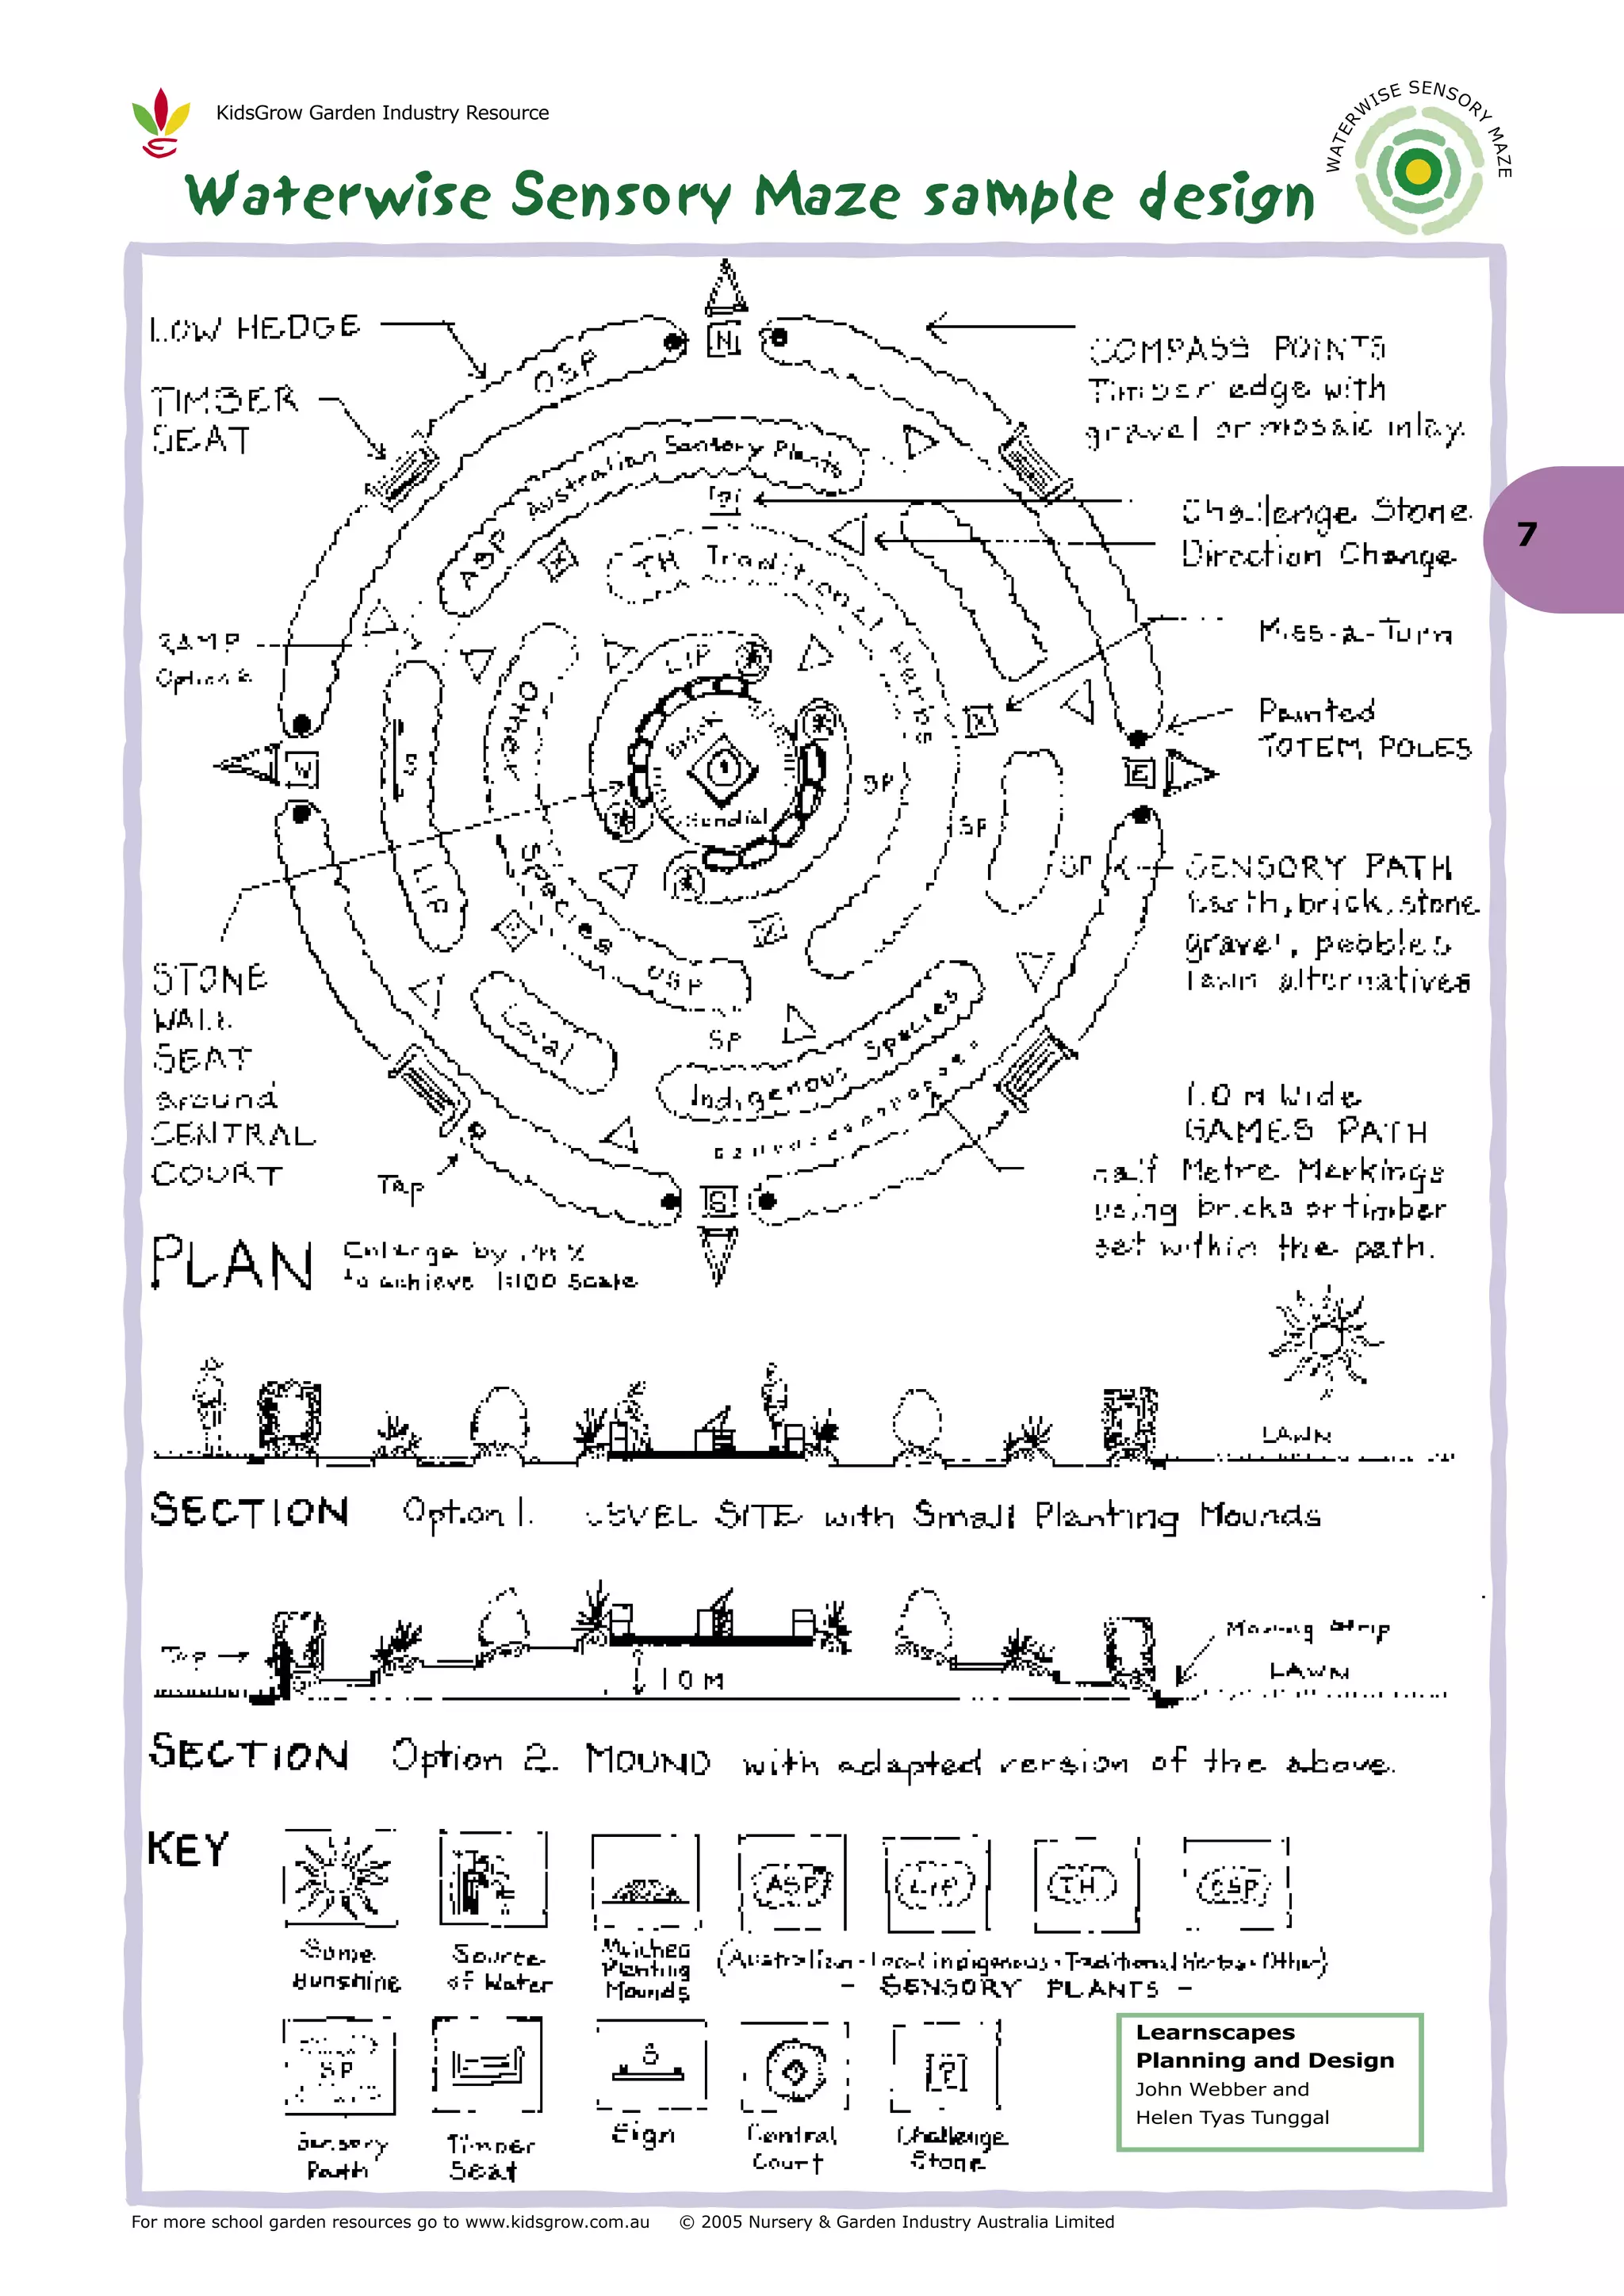 KidsGrow Garden Industry Resource
WATERWISE SENSORY MAZE
Waterwise Sensory Maze sample design
LOW HEDGE
TIMBER
SEAT
COMPASS POINTS
Timber edge with
gravel or mosaic inlay.
N
OSP
Australian Sensory Plants
ASP
?
Challenge Stone
Direction Change
7
TH Traditional Herbs
RAMP
Options
Miss-a-Turn
LIP
Other
Painted
TOTEM POLES
W
S
E
Sundial
SP
SP
SP
SENSORY PATH
Earth, brick, stone
gravel, pebbles
lawn alternatives
LIP
Species
OSP
STONE
WALL
SEAT
around
CENTRAL
COURT
Local
SP
Indigenous Species
1.0 m Wide
GAMES PATH
half Metre Markings
using bricks or timber
set within the path.
Tap
S
PLAN
Enlarge by
to achieve 1:100 Scale
LAWN
SECTION Option 1. LEVEL SITE with Small Planting Mounds
Tap
Mowing Strip
LAWN
1.0 M
SECTION Option 2. MOUND with adapted version of the above.
KEY
ASP
LIP
TH
OSP
Some
Sunshine
Source
of Water
Mulched
Planting
Mounds
(Australian - Local indigenous - Traditional Herbs - Other)
- SENSORY PLANTS -
SP
S
?
Sensory
Path
Timber
Seat
Sign
Central
Court
Challenge
Stone
Learnscapes
Planning and Design
John Webber and
Helen Tyas Tunggal
For more school garden resources go to www.kidsgrow.com.au © 2005 Nursery & Garden Industry Australia Limited